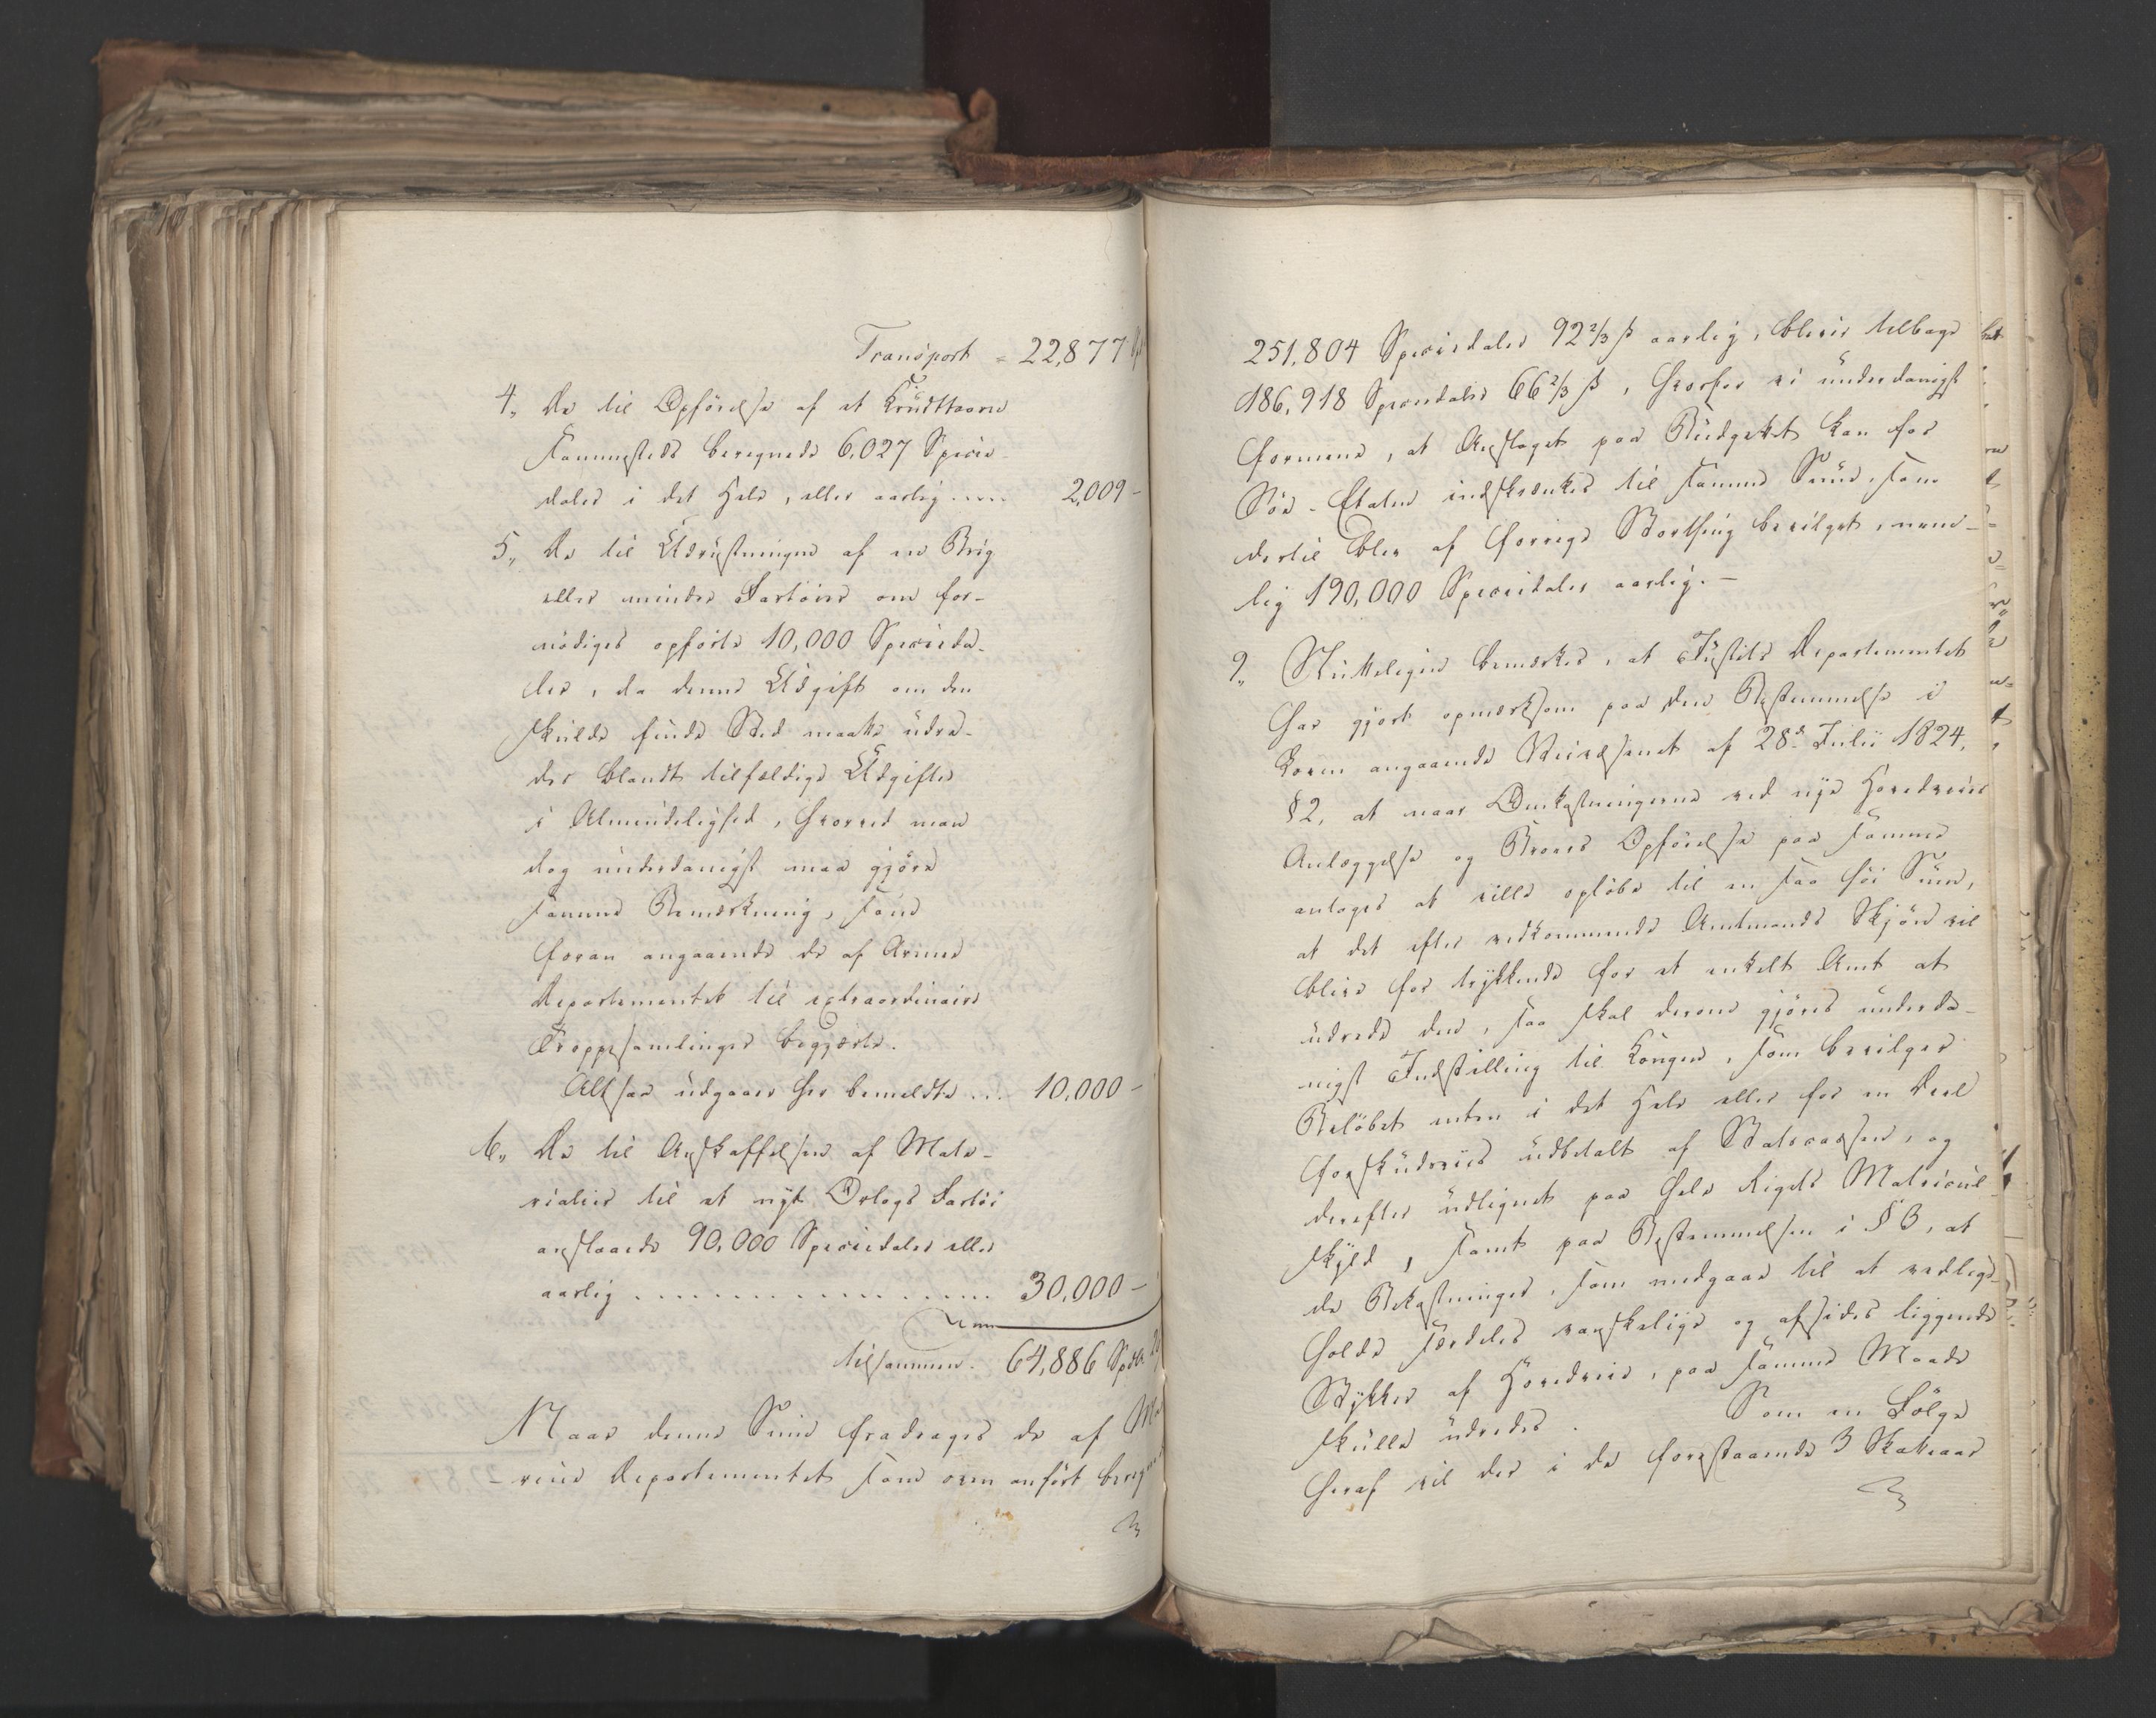 Transport = 22,877
4, De til Opførelse af et Krudttaarn
sammesteds beregnede 6,027 Specie-
daler i det Hele, eller aarlig ..... 2,009 -
5, De til Udrustningen af en Brig
eller mindre Fartøier om for-
nødiges opførte 10,000 Specieda-
ler, da denne Udgift om den
skulde finde Sted maatte udre-
des blandt tilfældige Udgifter
i Almindelighed, hvorved man
dog underdanigst maa gjøre
samme Bemærkning, som
foran angaaende de af Armee
Departementet til extraordinaire
Troppesamlinger begjærte.
Altsaa udgaaer her bemeldte ... 10,000 -
6, De til Anskaffelsen af Mate-
rialier til et nyt Orlogs Fartøi
anslaaede 90,000 Speciedaler eller
aarlig .................. 30,000 -
tilsammen. 64,886 Spdlr
Naar denne Sum fradrages de af Ma
- rine Departementet som oven anført bereg
251,804 Speciedaler 92 2/3 ß aarlig, bliver tilbage
186,918 Speciedaler 66 2/3 ß, hvorfor vi underdanigst
formene, at Anslaget paa Budgettet kan for
Søe-Etaten indskrænkes til samme Sum, som
dertil blev af forrige Storthing bevilget, nem-
lig 190,000 Speciedaler aarlig. -
9, Slutteligen bemærkes, at Justits Departementet
har gjort opmærksom paa den Bestemmelse i
Loven angaaende Veivæsenet af 28de Julii 1824,
§ 2, at naar Omkostningerne ved nye Hovedveies
Anlæggelse og Broers Opførelse paa samme
antages at ville opløbe til en saa høi Sum,
at det efter vedkommende Amtmands Skjøn vil
blive for trykkende for et enkelt Amt at
udrede den, saa skal derom gjøres underda-
nigst Indstilling til Kongen, som bevilger
Beløbet enten i det Hele eller for en Deel
forskudsviis udbetalt af Statscassen, og
derefter udlignet paa hele Rigets Matricul-
skyld, samt paa Bestemmelsen i § 3, at
de Bekostninger, som medgaae til at vedlige-
holde særdeles vanskelige og afsides liggende
Stykker af Hovedveie, paa samme Maade
skulle udredes. Som en Følge
heraf vil der i de forestaaende 3 Skatteaar